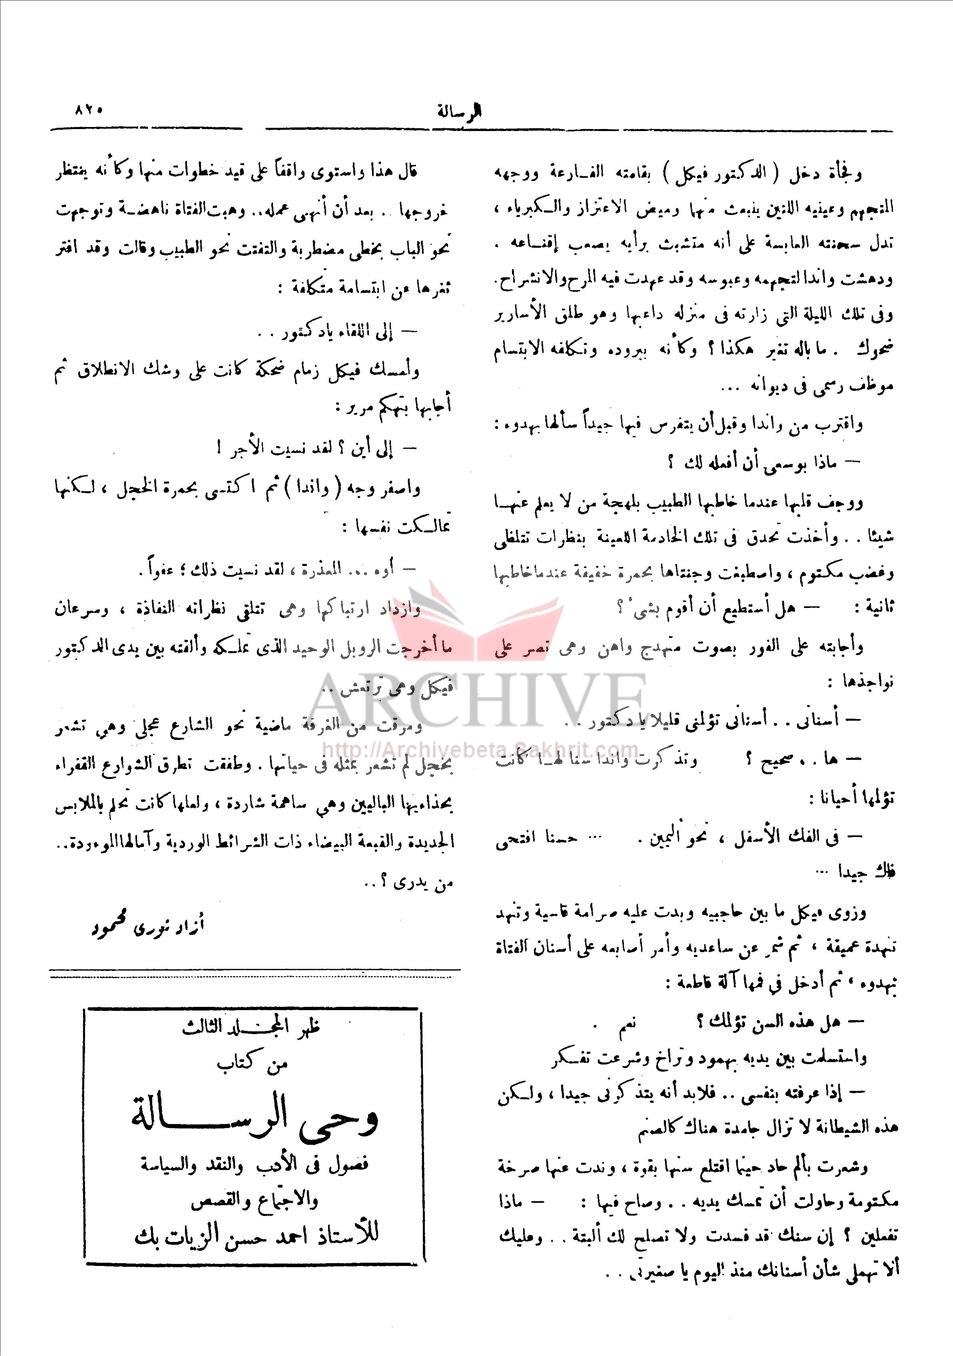 الرسالة
٨٢٥
وفجأة دخل ( الدكتور فيكل ) بقامته الفارعة ووجهه
المتجهم وعينيه اللتين ينبعث منها وميض الاعتزاز والكبرياء ،
تدل سحنته العابسة على أنه متشبث برأيه يصعب إقناعه .
ودهشت واندا لتجهمه وعبوسه وقد عهدت فيه المرح والانشراح.
وفى تلك الليلة التي زارته فى منزله داعبها وهو طلق الأسارير
ضحوك . ما باله تغير هكذا ؟ وكأنه ببروده وتكلفه الابتسام
موظف رسمى فى ديوانه ...
واقترب من واندا وقبل أن يتفرس فيها جيداً سألها بهدوء :
— ماذا بوسعى أن أفعله لك ؟
ووجف قلبها عندما خاطبها الطبيب بلهجة من لا يعلم عنها
شيئا . . وأخذت تحدق فى تلك الخادمة اللعينة بنظرات تتلظى
وغضب مكتوم ، واصطبغت وجنتاها بحمرة خفيفة عندما خاطبها
ثانية : — هل أستطيع أن أقوم بشىء ؟
وأجابته على الفور بصوت متهدج واهن وهى تصر على
نواجذها :
— أسنانى . . أسنانى تؤلمنى قليلا يا دكتور . .
— ها . . صحيح ؟ وتذكرت واندا سنا لها كانت
تؤلمها أحيانا :
— فى الفك الأسفل ، نحو اليمين . ... حسنا افتحى
فاك جيدا ...
وزوى فيكل ما بين حاجبيه وبدت عليه صرامة قاسية وتنهد
تنهدة عميقة ، ثم شمر عن ساعديه وأمر أصابعه على أسنان الفتاة
بهدوء ، ثم أدخل في فمها آلة قاطعة :
— هل هذه السن تؤلمك ؟ نعم .
واستسلمت بين يديه بهمود وتراخ وشرعت تفكر
— إذا عرفته بنفسى . . فلابد أنه يتذكرنى جيدا ، ولكن
هذه الشيطانة لا تزال جامدة هناك كالصنم
وشعرت بألم حاد حينما اقتلع سنها بقوة ، وندت عنها صرخة
مكتومة وحاولت أن تمسك يديه . . وصاح فيها : — ماذا
تفعلين ؟ إن سنك قد فسدت ولا تصلح لك ألبتة . . وعليك
ألا تهملى شأن أسنانك منذ اليوم يا صغيرتى . .
قال هذا واستوى واقفاً على قيد خطوات منها وكأنه ينتظر
خروجها . . بعد أن أنهى عمله.. وهبت الفتاة ناهضة وتوجهت
نحو الباب بخطى مضطربة والتفتت نحو الطبيب وقالت وقد افتر
ثغرها عن ابتسامة متكلفة :
— إلى اللقاء يا دكتور . .
وأمسك فيكل زمام ضحكة كانت على وشك الانطلاق ثم
أجابها بتهكم مرير :
— إلى أين ؟ لقد نسيت الأجر !
واصفر وجه ( واندا ) ثم اكتسى بحمرة الخجل ، لكنها
تمالكت نفسها :
— أوه ... المعذرة ، لقد نسيت ذلك ؛ عفواً .
وازداد ارتباكها وهى تتلقى نظراته النفاذة ، وسرعان
ما أخرجت الروبل الوحيد الذى تملكه وألقته بين يدى الدكتور
فيكل وهى ترتعش ..
ومرقت من الغرفة ماضية نحو الشارع عجلى وهى تشعر
بخجل لم تشعر بمثله فى حياتها . وطفقت تطرق الشوارع القفراء
بحذاءيها الباليين وهي ساهمة شاردة ، ولعلها كانت تحلم بالملابس
الجديدة والقبعة البيضاء ذات الشرائط الوردية وآمالها الموءودة..
من يدرى ؟ ..
أزاد نورى محمود
ظهر المجلد الثالث
من كتاب
وحى الرسالة
فصول فى الأدب والنقد والسياسة
والاجتماع والقصص
للأستاذ احمد حسن الزيات بك
ARCHIVE
http://Archivebeta.Sakhrit.com